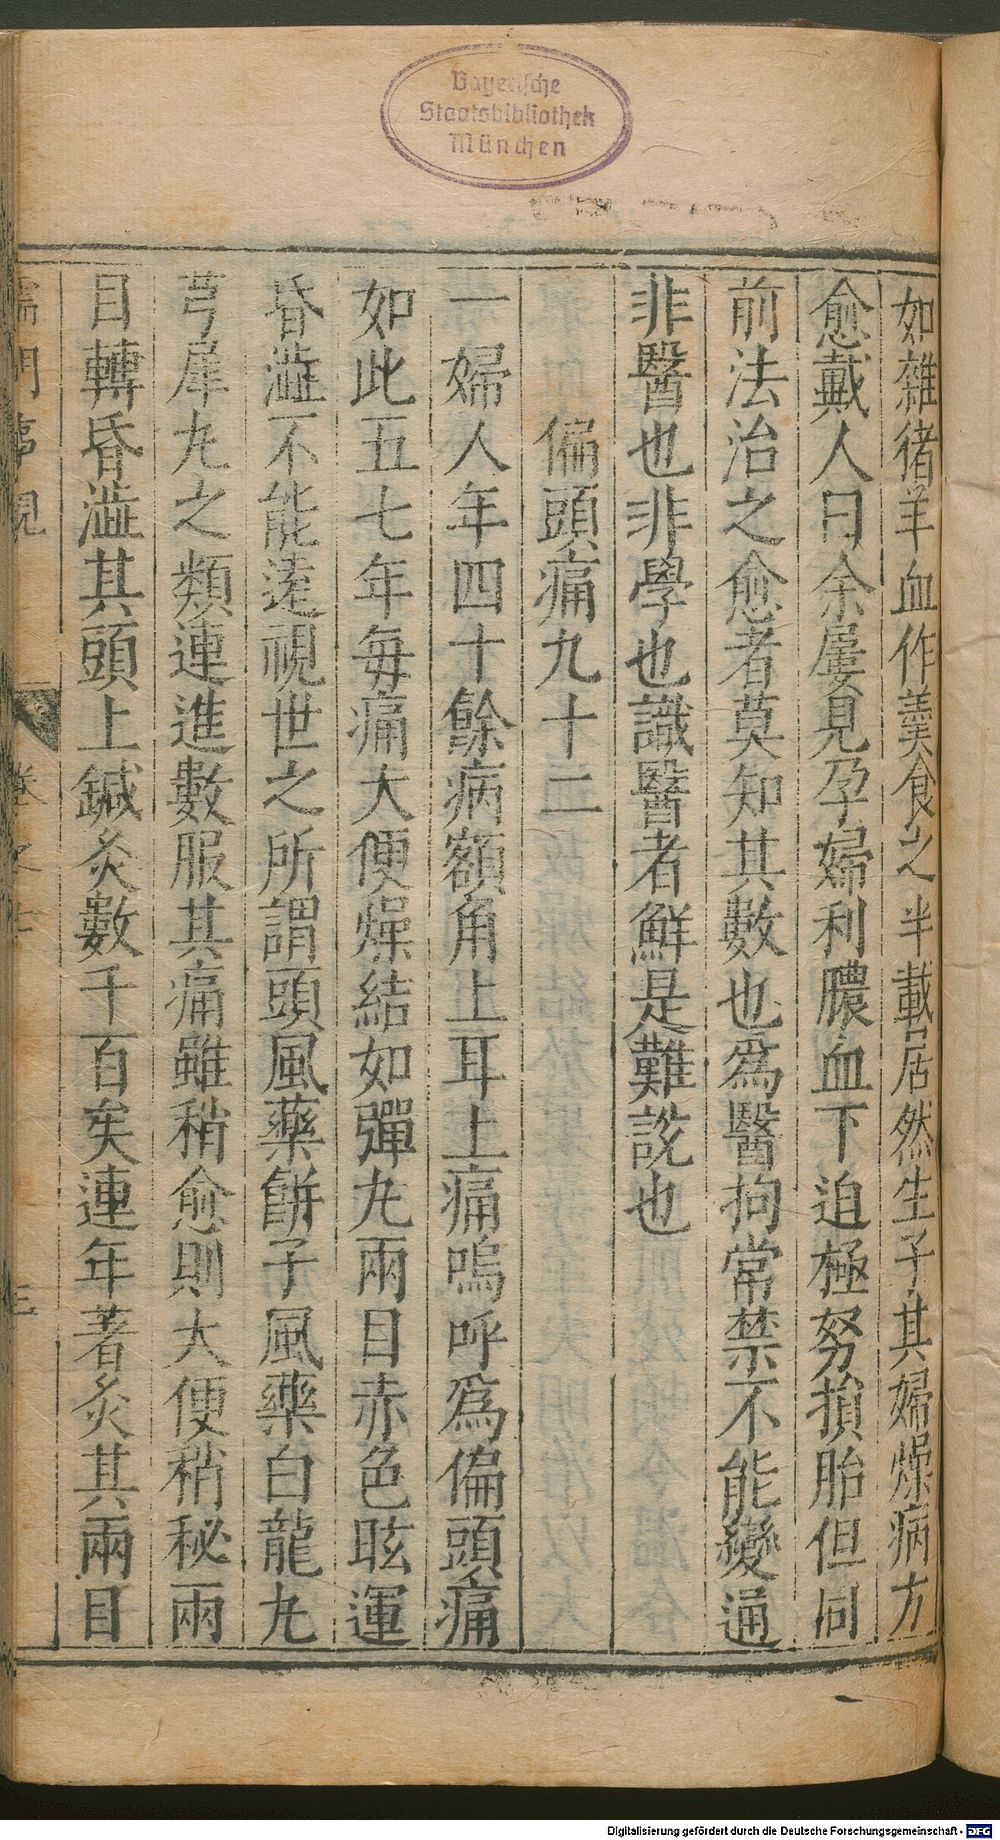 Bayerische
Staatsbibliothek
München
如雜猪羊血作羹食之半載居然生子其婦燥病方
愈戴人曰余屢見孕婦利膿血下迫極努損胎但同
前法治之愈者莫知其數也為醫拘常禁不能變通
非醫也非學也識醫者鮮是難說也
偏頭痛九十二
一婦人年四十餘病額角上耳上痛嗚呼為偏頭痛
如此五七年每痛大便燥結如彈丸兩目赤色眩運
昏澁不能遠視世之所謂頭風藥餅子風藥白龍丸
芎犀丸之類連進數服其痛雖稍愈則大便稍秘兩
目轉昏澁其頭上鍼灸數千百矣連年著灸其兩目
儒門事親 卷之七 三
Digitalisierung gefördert durch die Deutsche Forschungsgemeinschaft - DFG